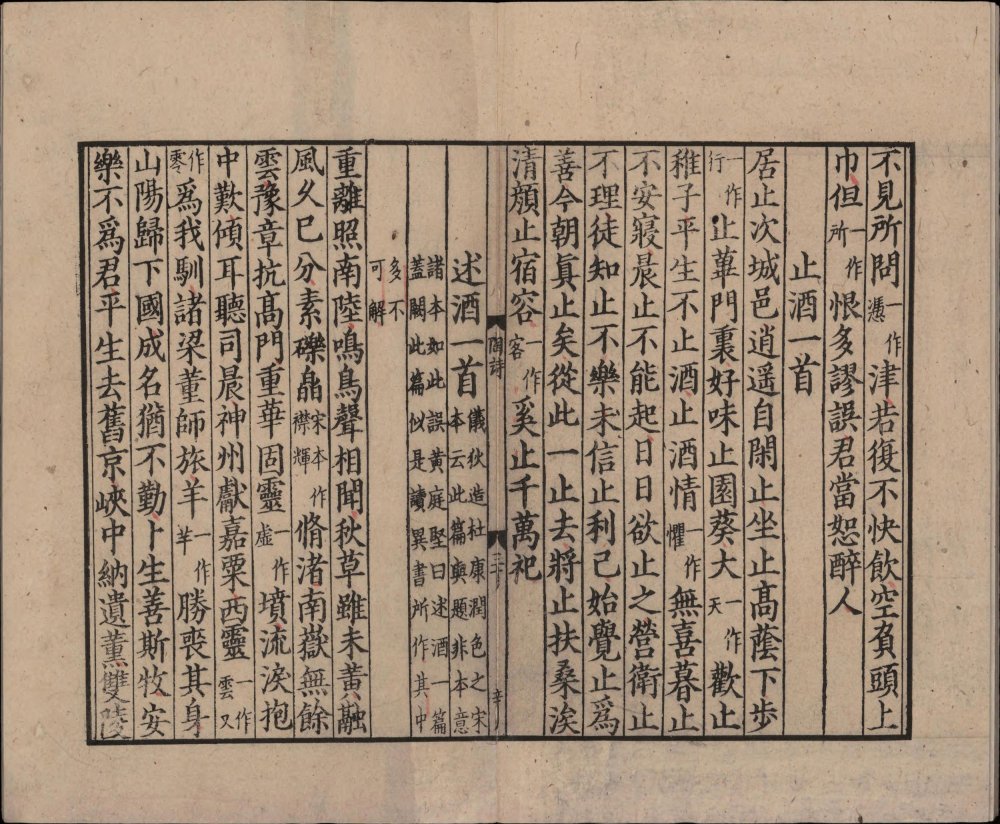 不見所問一作憑津若復不快飲空負頭上
巾但一作所恨多謬誤君當恕醉人
止酒一首
居止次城邑逍遥自閑止坐止高蔭下步
一作行止蓽門裏好味止園葵大一作天歡止
稚子平生不止酒止酒情一作懼無喜暮止
不安寢晨止不能起日日欲止之營衛止
不理徒知止不樂未信止利己始覺止爲
善今朝真止矣從此一止去將止扶桑涘
清顔止宿容一作客奚止千萬祀
陶詩
辛
述酒一首儀狄造杜康潤色之宋本云此篇與題非本意
諸本如此誤黄庭堅曰述酒一篇蓋闕此篇似是讀異書所作其中
多不可解
重離照南陸鳴鳥聲相聞秋草雖未黄融
風久已分素礫皛宋本作襟輝脩渚南嶽無餘
雲豫章抗高門重華固靈一作虛墳流淚抱
中歎傾耳聽司晨神州獻嘉粟西靈一作雲又
作零爲我馴諸梁董師旅羊一作芊勝喪其身
山陽歸下國成名猶不勤卜生善斯牧安
樂不爲君平生去舊京峽中納遺薰雙陵